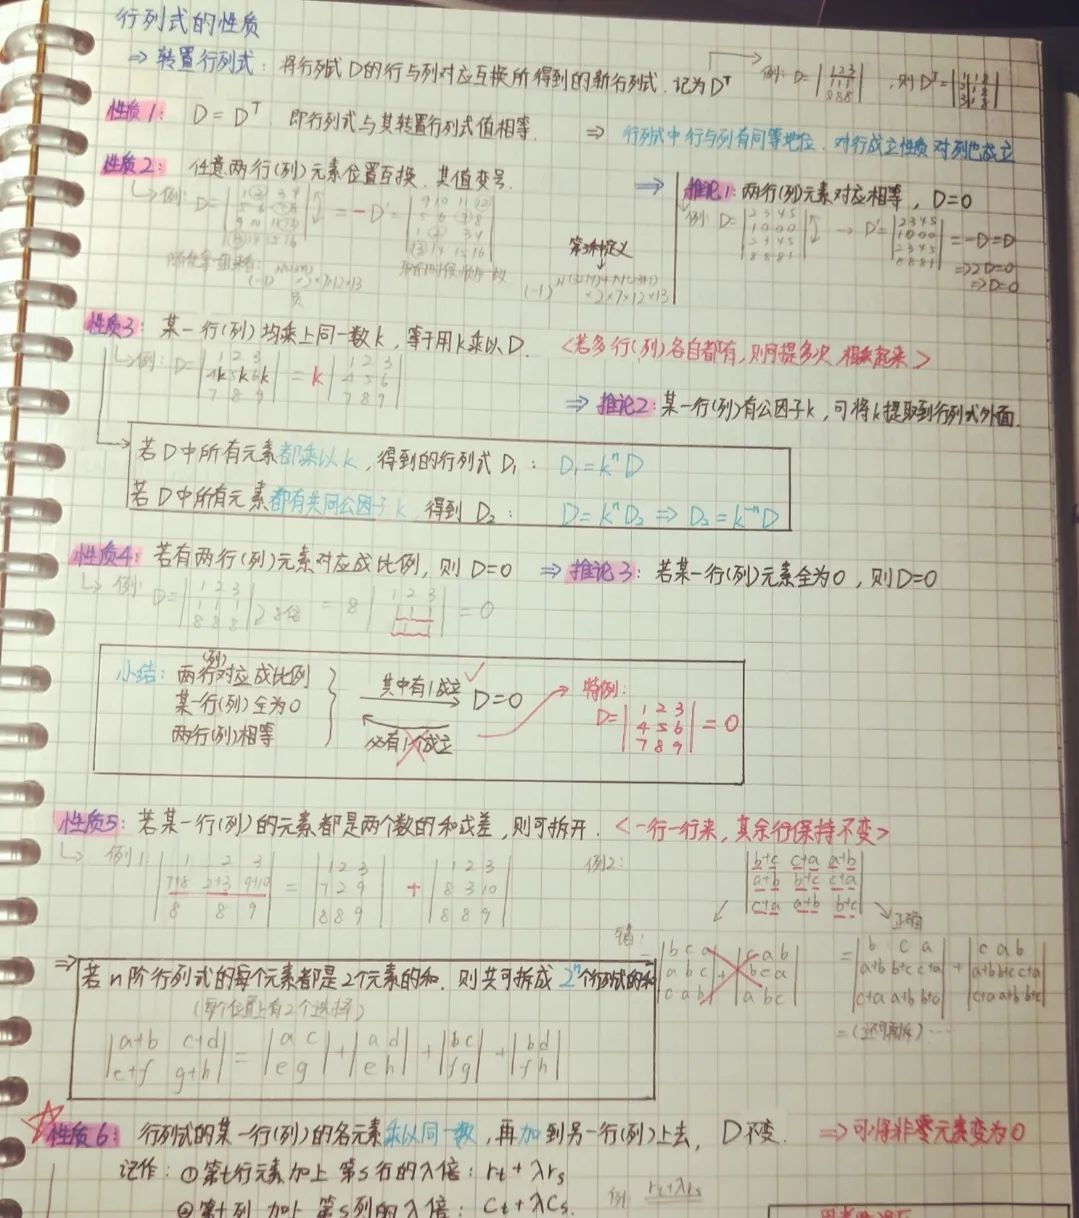 行列式的性质
⇒ 转置行列式：将行列式D的行与列对应互换所得到的新行列式.记为Dᵀ 例: D=|1 2 3; 1 1 1; 8 8 8| ,则Dᵀ=|1 1 8; 2 1 8; 3 1 8|
性质1: D=Dᵀ 即行列式与其转置行列式值相等. ⇒ 行列式中行与列有同等地位.对行成立性质对列也成立
性质2: 任意两行(列)元素位置互换.其值变号. ⇒ 推论1:两行(列)元素对应相等, D=0
例: D=|1 2 3 4; 5 6 7 8; 9 10 11 12; 13 14 15 16| = -D' = |9 10 11 12; 5 6 7 8; 1 2 3 4; 13 14 15 16|
例: D=|2 3 4 5; 1 0 0 0; 2 3 4 5; 8 8 8 1| → D'=|2 3 4 5; 1 0 0 0; 2 3 4 5; 8 8 8 1| = -D=D
⇒2D=0
⇒D=0
×2×7×12×13
性质3: 某一行(列)均乘上同一数k,等于用k乘以D. <若多行(列)各自都有,则可提多次,相乘起来>
例: D=|1 2 3; 4k 5k 6k; 7 8 9| = k|1 2 3; 4 5 6; 7 8 9|
⇒ 推论2:某一行(列)有公因子k,可将k提取到行列式外面.
若D中所有元素都乘以k,得到的行列式D₁: D₁=kⁿD
若D中所有元素都有共同公因子k.得到D₂: D=kⁿD₂ ⇒ D₂=k⁻ⁿD
性质4: 若有两行(列)元素对应成比例,则D=0 ⇒ 推论3: 若某一行(列)元素全为0,则D=0
例: D=|1 2 3; 1 1 1; 8 8 8| 8倍 = 8|1 2 3; 1 1 1; 1 1 1| = 0
小结: 两行(列)对应成比例
某一行(列)全为0
两行(列)相等
其中有1成立 D=0
必有1个成立
特例:
D=|1 2 3; 4 5 6; 7 8 9|=0
性质5: 若某一行(列)的元素都是两个数的和或差,则可拆开. <一行一行来,其余行保持不变>
例1: |1 2 3; 7+8 2+3 9+10; 8 8 9| = |1 2 3; 7 2 9; 8 8 9| + |1 2 3; 8 3 10; 8 8 9|
例2: |b+c c+a a+b; a+b b+c c+a; c+a a+b b+c|
错: |b c a; a b c; c a b| + |c a b; b c a; a b c|
正确
=|b c a; a+b b+c c+a; c+a a+b b+c| + |c a b; a+b b+c c+a; c+a a+b b+c|
=(还可再拆)……
⇒ 若n阶行列式的每个元素都是2个元素的和.则共可拆成2ⁿ个行列式的和
(每个位置上有2个选择)
|a+b c+d; e+f g+h| = |a c; e g| + |a d; e h| + |b c; f g| + |b d; f h|
☆性质6: 行列式的某一行(列)的各元素乘以同一数,再加到另一行(列)上去, D不变. ⇒可将非零元素变为0
记作: ①第t行元素加上第s行的λ倍: rₜ+λrₛ
②第t列 加上 第s列的λ倍: Cₜ+λCₛ. 例: rₜ+λrₛ